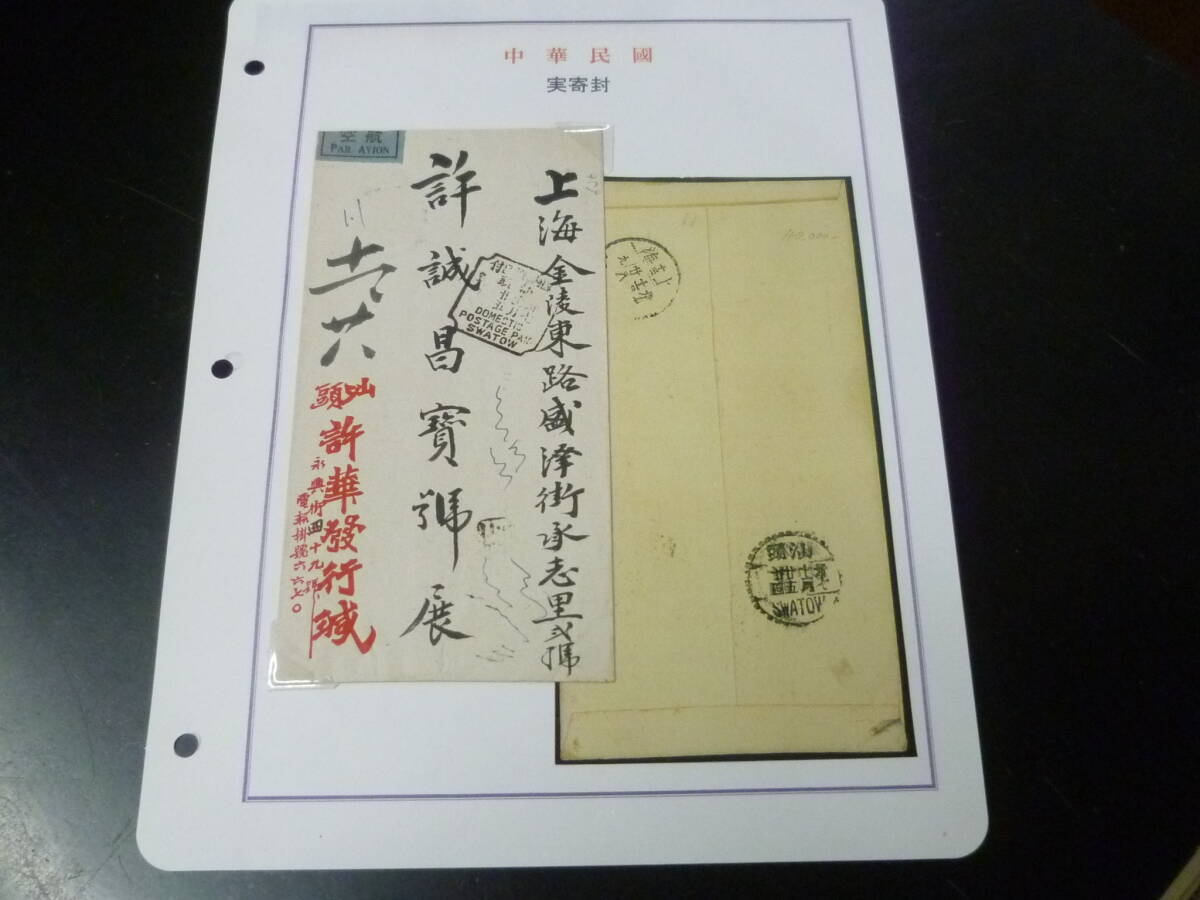 中華民國
実寄封
航空
PAR AVION
上海金陵東路盛澤街承志里弍號
許誠昌寶號展
DOMESTIC
POSTAGE PAI
SWATOW
汕頭
許華發行緘
永興街四十九號
電報掛號六六七〇
40,000-
上海
汕頭
SWATOW